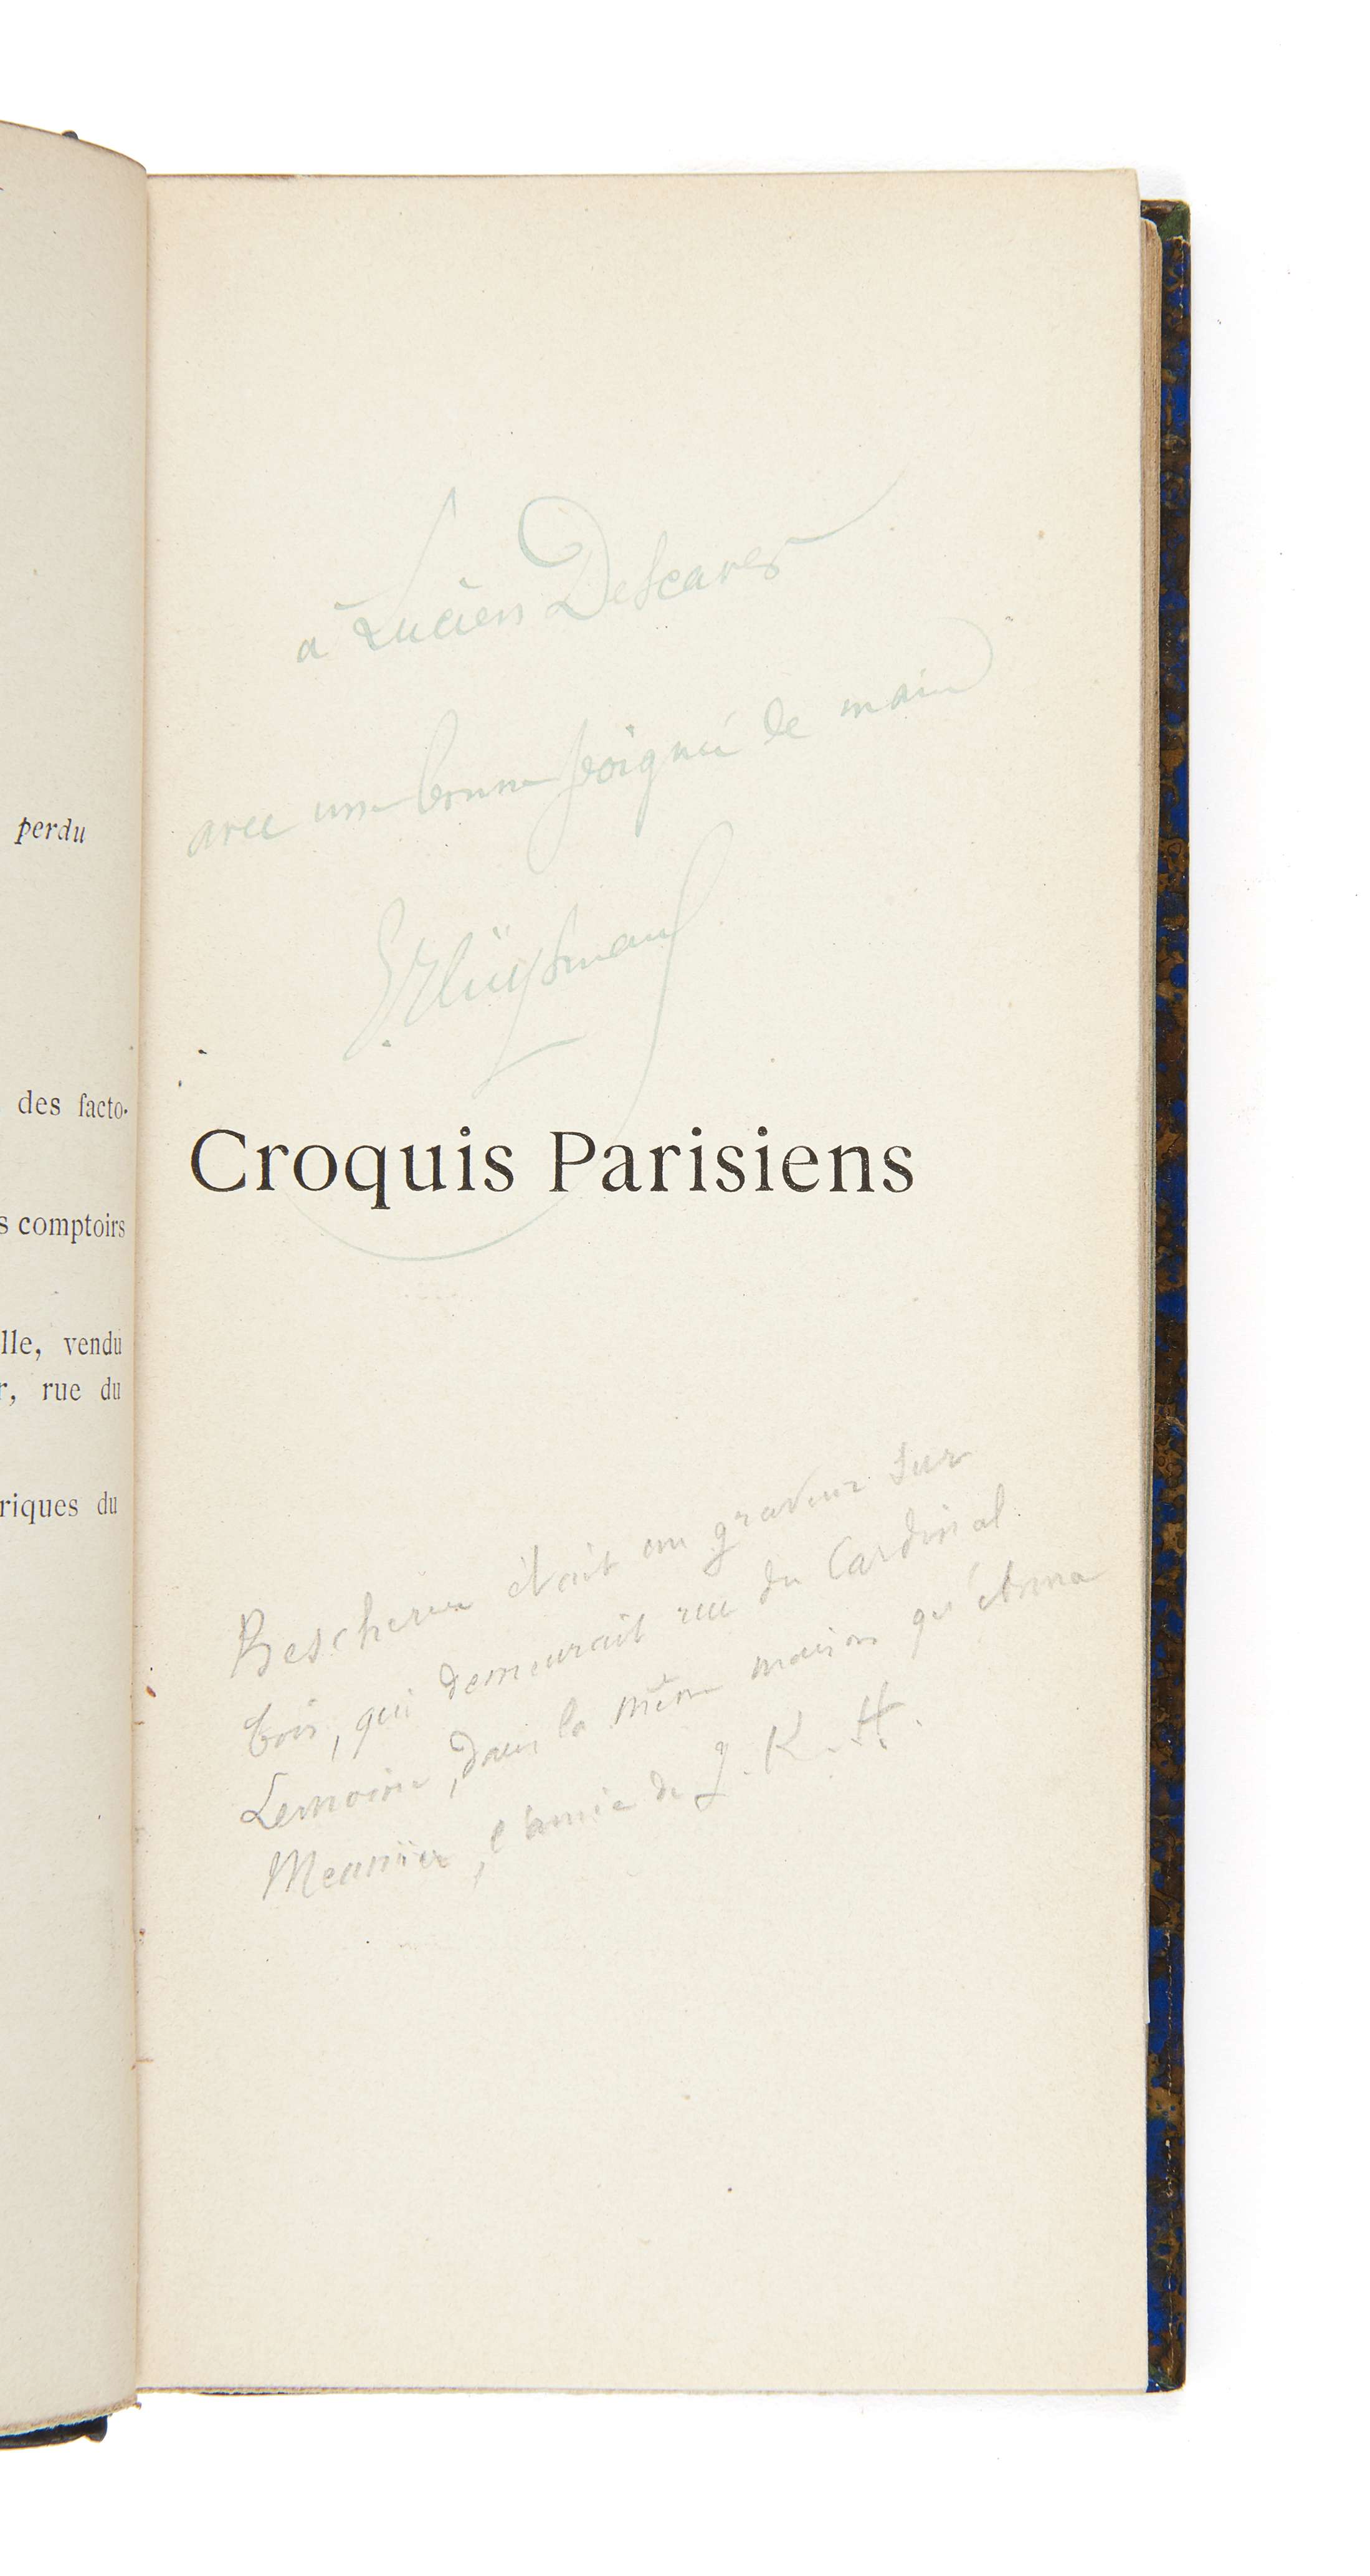 perdu
des facto-
s comptoirs
lle, vendu
r, rue du
riques du
à Lucien Descaves
avec une bonne poignée de main
G. Huÿsmans
Croquis Parisiens
Bescherer était un graveur sur
bois, qui demeurait rue du Cardinal
Lemoine, dans la même maison qu'Anna
Meunier, l'amie de J. K. H.